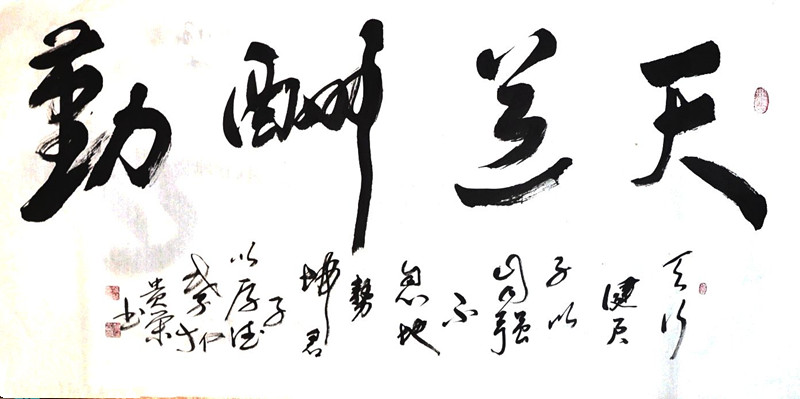 天道酬勤
天行
健君
子以
自强
不
息地
势
坤君
子
以厚德
载物
贵荣
书